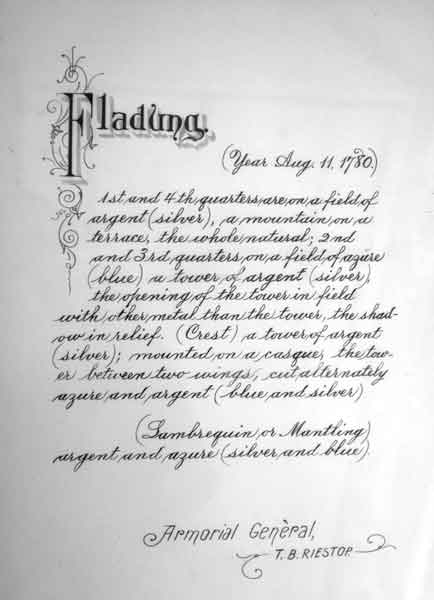 Fladung.
(Year Aug. 11, 1780.)
1st and 4th quarters are on a field of
argent (silver), a mountain on a
terrace, the whole natural; 2nd
and 3rd quarters on a field of azure
(blue) a tower of argent (silver),
the opening of the tower in field
with other metal than the tower, the shad-
ow in relief. (Crest) a tower of argent
(silver); mounted on a casque, the tow-
er between two wings, cut alternately
azure and argent (blue and silver)
(Lambrequin or Mantling)
argent and azure (silver and blue).
Armorial Genèral,
T. B. RIESTOP.